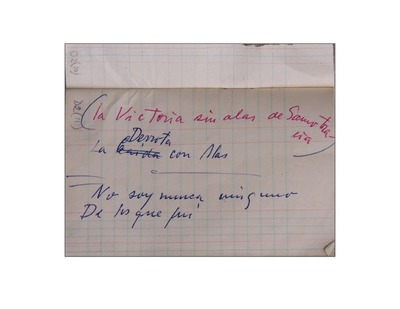 (la Victoria sin alas de Samotra
cia)
Derrota
La caída con Alas
No soy nunca ninguno
De los que fui